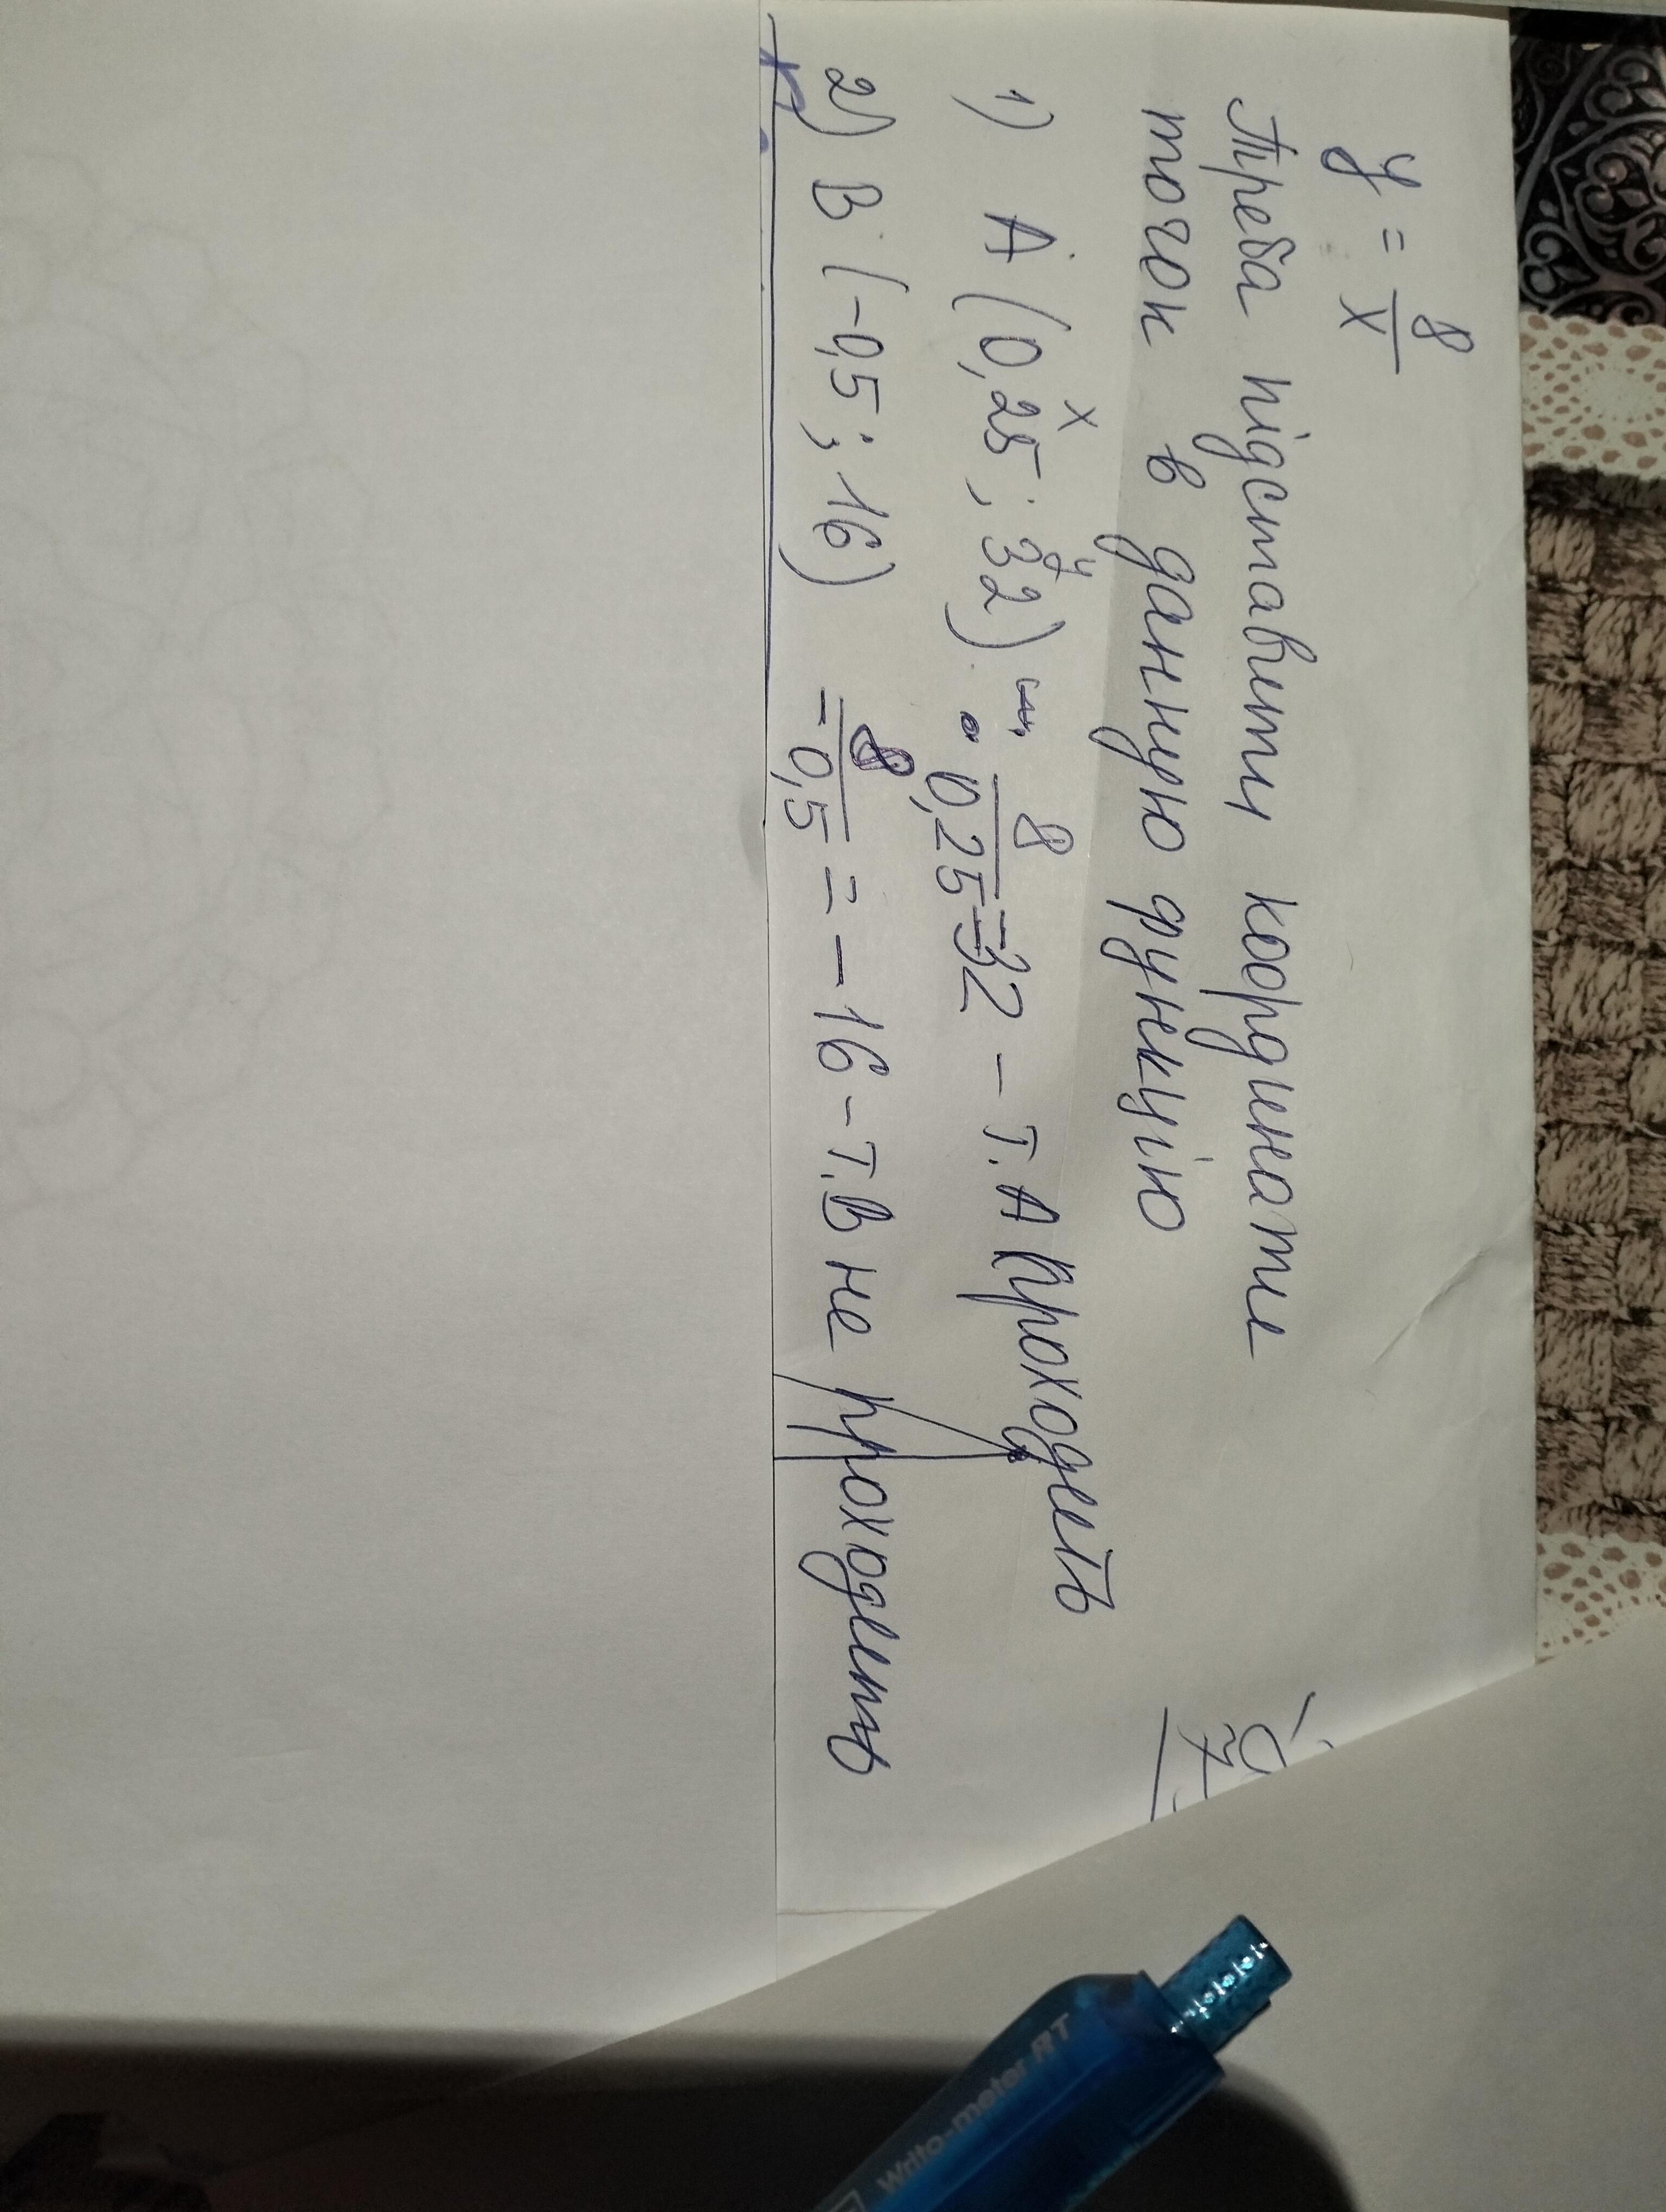 y = 8/x
Треба підставити кординати
точок в данную функцію
1) А (0,25; 32) 8/0,25 = 32 – т. А проходить
x y
2) В (-0,5; 16) 8/-0,5 = -16 – т. В не проходить
Write-meter RT